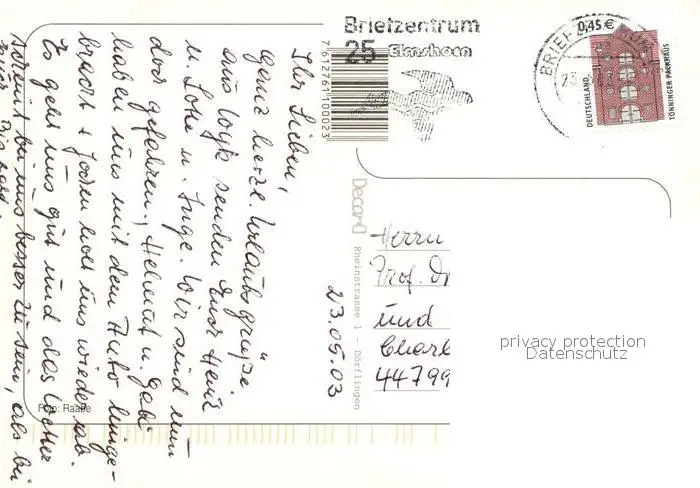 Briefzentrum
25 Elmshorn
BRIEF
0,45 €
DEUTSCHLAND
TÖNNINGER PACKHAUS
7612761100023
23.05.03
Ihr Lieben,
ganz herzl. Urlaubsgrüße
aus Wyk senden Euch Heinz
u. Lore u. Inge. Wir sind nun
dort gefahren, Helmut u. Gabi
haben uns mit dem Auto hinge-
bracht + Jochen holt uns wieder ab.
Es geht uns gut und das Wetter
scheint bei uns besser zu sein, als bei
Decard
Rheinstrasse 1 - Dörflingen
Herrn
Prof. Dr
und
Charl
44799
privacy protection
Datenschutz
Foto: Raabe